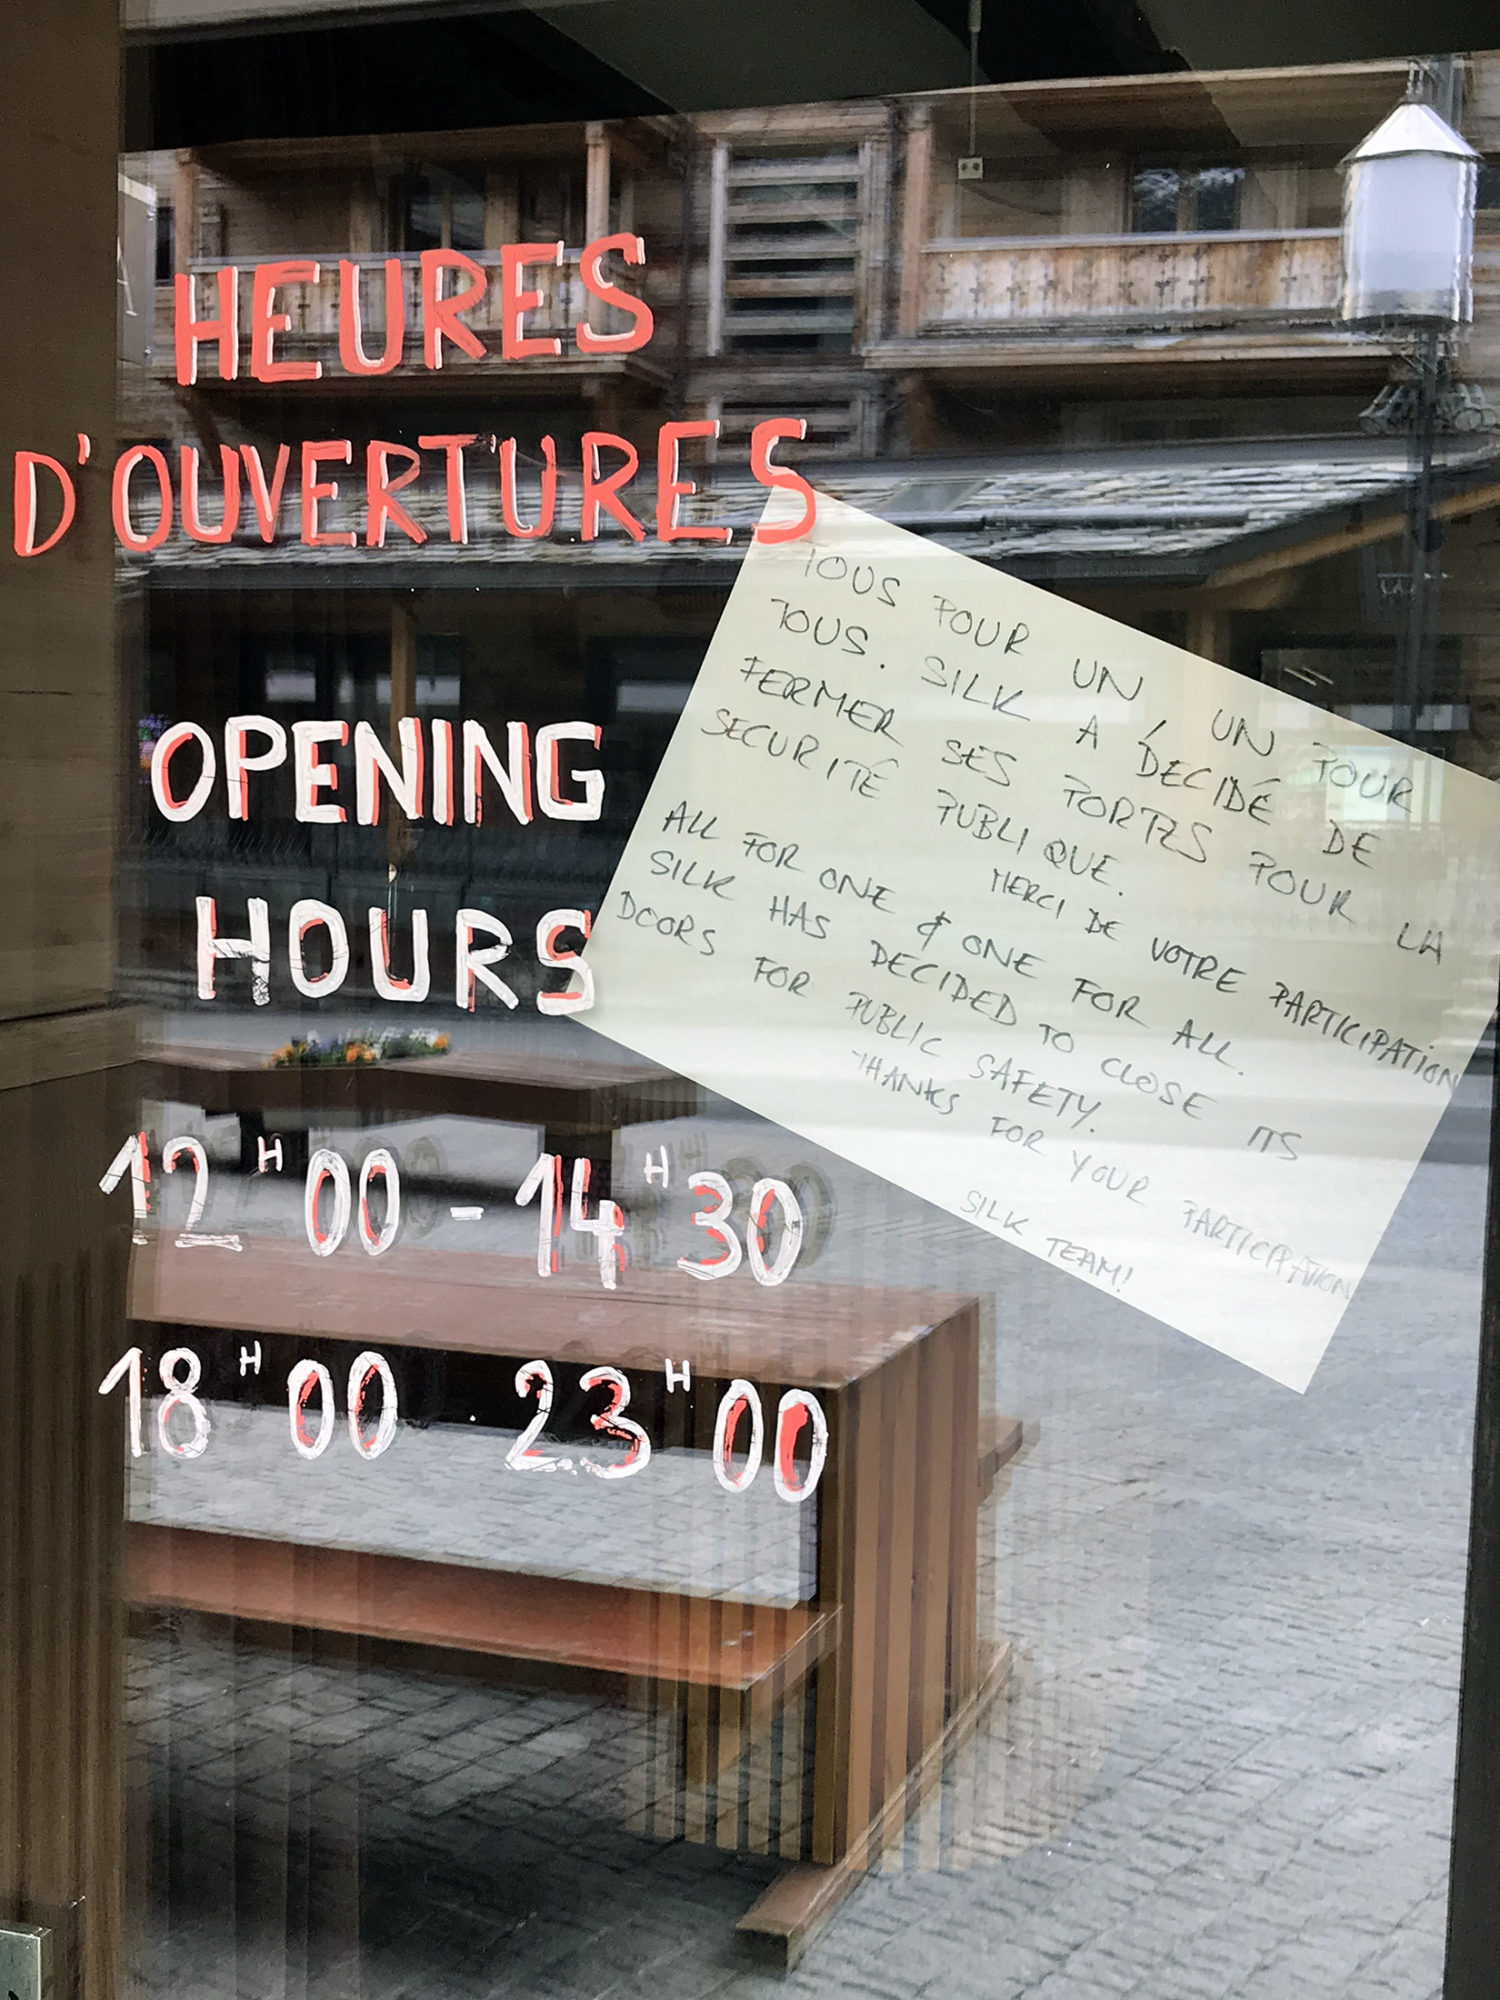 HEURES
D'OUVERTURES
OPENING
HOURS
12H00 - 14H30
18H00 - 23H00
TOUS POUR UN, UN POUR
TOUS. SILK A DÉCIDÉ DE
FERMER SES PORTES POUR LA
SECURITÉ PUBLIQUE.
MERCI DE VOTRE PARTICIPATION
ALL FOR ONE & ONE FOR ALL.
SILK HAS DECIDED TO CLOSE ITS
DOORS FOR PUBLIC SAFETY.
THANKS FOR YOUR PARTICIPATION
SILK TEAM!